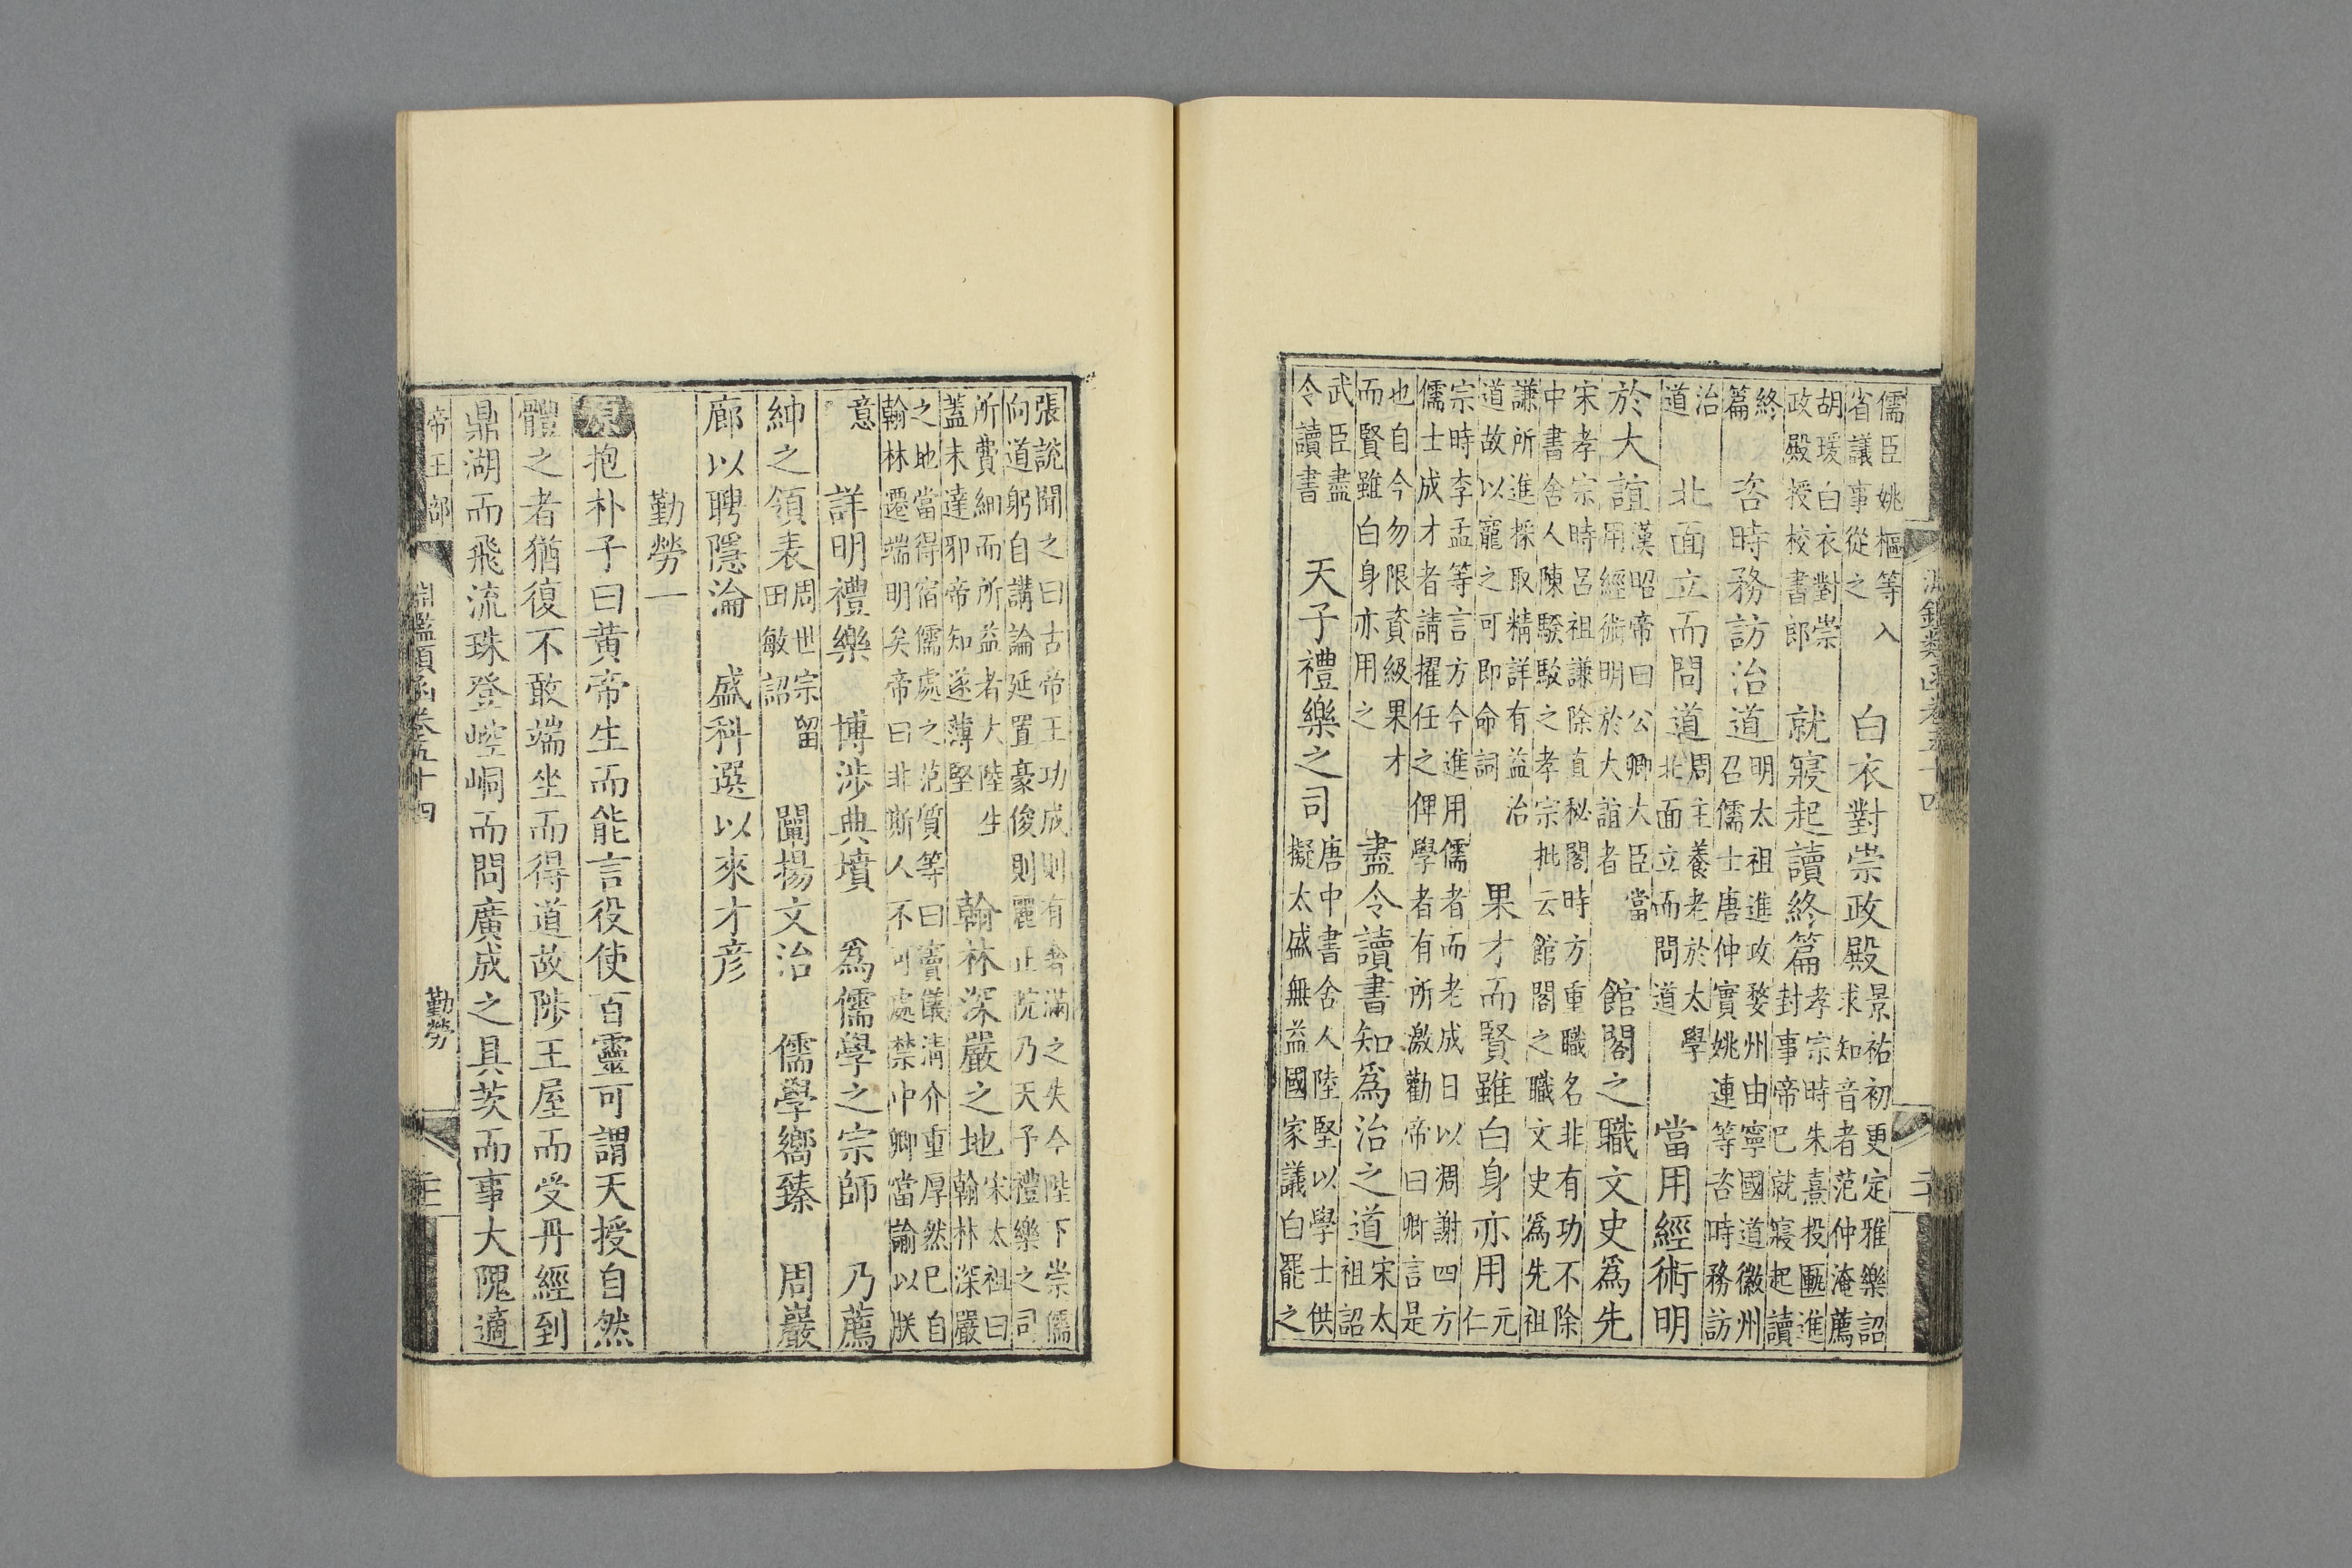 儒臣姚樞等入省議事從之 白衣對崇政殿 景祐初更定雅樂詔求知音者范仲淹薦
胡瑗白衣對崇政殿授校書郎 就寢起讀終篇 孝宗時朱熹投匭進封事帝已就寢起讀
終篇 咨時務訪治道 明太祖進攻婺州由寧國道徽州召儒士唐仲實姚連等咨時務訪
治道 北面立而問道 周主養老於太學北面立而問道 當用經術明
於大誼 漢昭帝曰公卿大臣當用經術明於大誼者 館閣之職文史爲先
宋孝宗時呂祖謙除直秘閣時方重職名非有功不除中書舍人陳騤駁之孝宗批云館閣之職文史爲先祖
謙所進採取精詳有益治道故以寵之可即命詞 果才而賢雖白身亦用 元仁
宗時李孟等言方今進用儒者而老成日以凋謝四方儒士成才者請擢任之俾學者有所激勸帝曰卿言是
也自今勿限資級果才而賢雖白身亦用之 盡令讀書知爲治之道 宋太祖詔
武臣盡令讀書 天子禮樂之司 唐中書舍人陸堅以學士供擬太盛無益國家議白罷之
張說聞之曰古帝王功成則有奢滿之失今陛下崇儒向道躬自講論延置豪俊則麗正院乃天子禮樂之司
所費細而所益者大陸生蓋未達邪帝知遂薄堅 翰林深嚴之地 宋太祖曰翰林深嚴
之地當得宿儒處之范質等曰竇儀清介重厚然已自翰林遷端明矣帝曰非斯人不可處禁中卿當諭以朕
意 詳明禮樂 博涉典墳 爲儒學之宗師 乃薦
紳之領表 周世宗留田敏詔 闡揚文治 儒學嚮臻 周巖
廊以聘隱淪 盛科選以來才彥
勤勞一
原抱朴子曰黄帝生而能言役使百靈可謂天授自然
體之者猶復不敢端坐而得道故陟王屋而受丹經到
鼎湖而飛流珠登崆峒而問廣成之具茨而事大隗適
帝王部 淵鑑類函卷五十四 勤勞